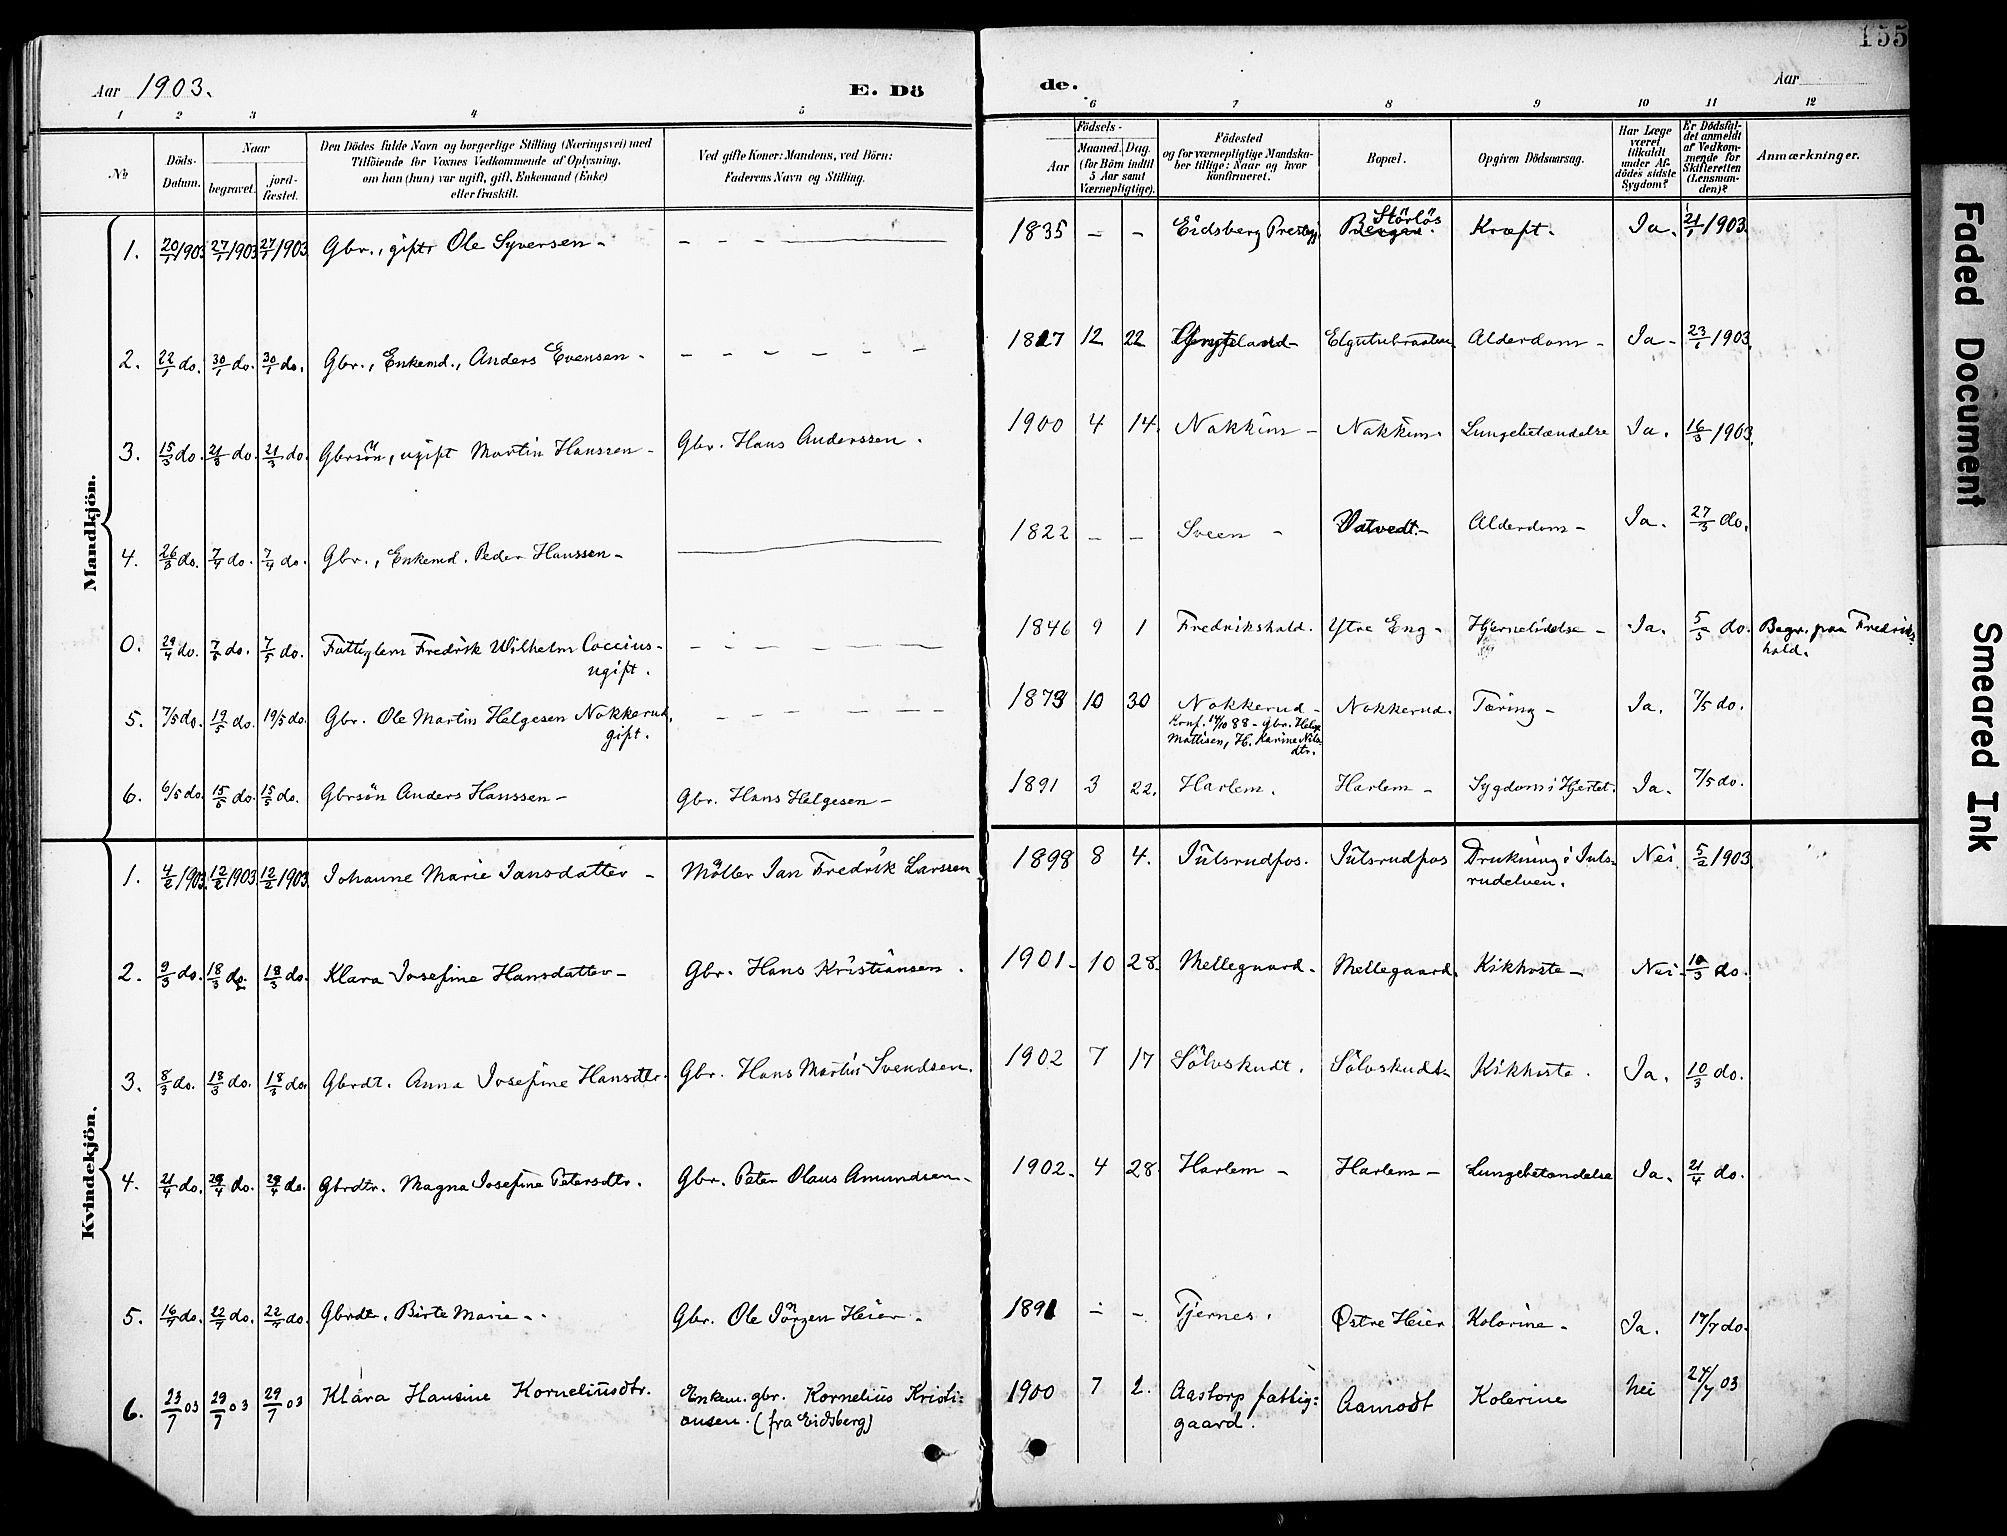 155
Aar 1903.
E. Dö
de.
Aar
1 2 3 4 5 6 7 8 9 10 11 12
No
Döds-
Datum.
Naar
begravet.
jord-
fæstet.
Den Dödes fulde Navn og borgerlige Stilling (Næringsvei) med
Tilföiende for Voxnes Vedkommende af Oplysning,
om han (hun) var ugift, gift, Enkemand (Enke)
eller fraskilt.
Ved gifte Koner: Mandens, ved Börn:
Faderens Navn og Stilling.
Födsels-
Aar
Maaned. Dag.
(for Börn indtil
5 Aar samt
Værnepligtige).
Födested
og for værnepligtige Mandska-
ber tillige: Naar og hvor
konfirmeret.
Bopæl.
Opgiven Dödsaarsag.
Har Læge
været
tilkaldt
under Af-
dödes sidste
Sygdom?
Er Dödsfal-
det anmeldt
af Vedkom-
mende for
Skifteretten
(Lensman-
den)?
Anmærkninger.
Mandkjön.
1. 20/1 1903 27/1 1903 27/1 1903 Gbr., gift Ole Syversen - 1835 - - Eidsberg Prestgj. Störlös Kræft. Ja. 21/1 1903.
2. 22/1 do. 30/1 do. 30/1 do. Gbr., Enkemd., Anders Evensen - 1817 12 22 Elgetubraaten Alderdom - Ja - 23/1 1903.
3. 15/3 do. 21/3 do. 21/3 do. Gbrsön, ugift Martin Hanssen - Gbr. Hans Anderssen. 1900 4 14. Nakkim - Nakkim. Lungebetændelse Ja. 16/3 1903.
4. 26/3 do. 7/4 do. 7/4 do. Gbr., Enkemd. Peder Hanssen - 1822 - - Sveen - Vatvedt. - Alderdom - Ja. 27/3 do.
0. 29/4 do. 7/5 do. 7/5 do. Fattiglem Fredrik Wilhelm Coccius - 1846 9 1 Fredrikshald. Ytre Eng - Hjernelidelse - Ja. 5/5 do. Begr. paa Fredriks-
ugift. hald.
5. 7/5 do. 19/5 do. 19/5 do. Gbr. Ole Martin Helgesen Nakkerud, 1873 10 30 Nakkerud - Nakkerud. Tæring - Ja. 7/5 do.
gift. Konf. 14/10 88 - gbr. Helge
Mattisen, H. Karine Nils-
dtr.
6. 6/5 do. 15/5 do. 15/5 do. Gbrsön Anders Hanssen - Gbr. Hans Helgesen - 1891 3 22. Harlem. Harlem - Sygdom i Hjertet. Ja. 7/5 do.
Kvindekjön.
1. 4/2 1903. 12/2 1903 12/2 1903 Johanne Marie Jansdatter - Möller Jan Fredrik Larssen 1898 8 4. Julsrudfos. Julsrudfos Drukning i Juls- Nei 5/2 1903.
rudelven.
2. 9/3 do. 18/3 do. 18/3 do. Klara Josefine Hansdatter - Gbr. Hans Kristiansen. 1901 - 10 28. Mellegaard. Mellegaard. Kikhoste - Nei - 10/3 do.
3. 8/3 do. 18/3 do. 18/3 do. Gbrdt. Anna Josefine Hansdtr. Gbr. Hans Martin Svendsen. 1902 7 17 Sölvskudt. Sölvskudt - Kikhoste. Ja. 10/3 do.
4. 21/4 do. 29/4 do. 29/4 do. Gbrdtr. Magna Josefine Petersdtr. Gbr. Peter Olaus Amundsen - 1902 - 4 28. Harlem - Harlem - Lungebetændelse Ja. 21/4 do.
5. 16/7 do. 22/7 do. 22/7 do. Gbrdt. Birte Marie - Gbr. Ole Jörgen Heier - 1891 - - Tjernes. Østre Heier Kolerine - Ja. 17/7 do.
6. 23/7 03 29/7 03 29/7 03 Klara Hansine Korneliusdtr. Enkem. gbr. Kornelius Kristi- 1900 7 2. Aastorp fattig- Aamodt Kolerine nei 24/7 03
ansen. (fra Eidsberg) gaard.
Faded Document
Smeared Ink